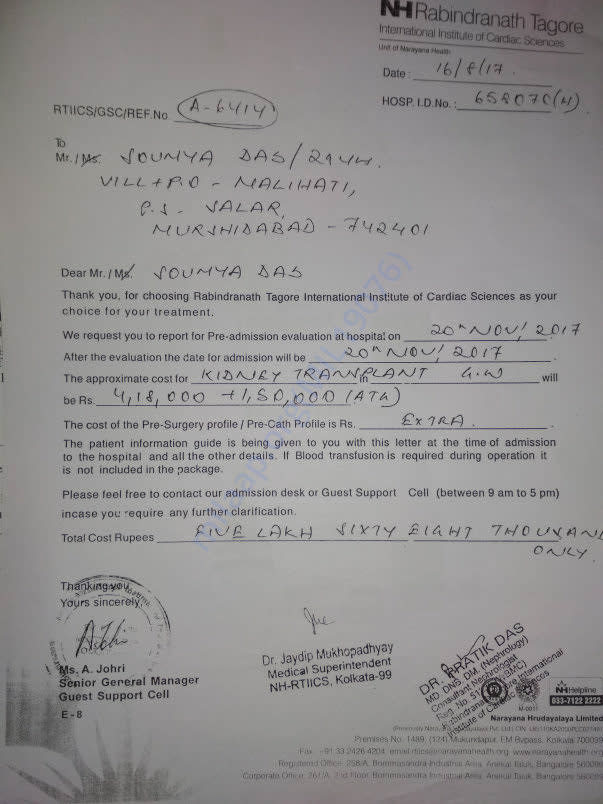 NH Rabindranath Tagore
International Institute of Cardiac Sciences
Unit of Narayana Health
Date : 16/8/17.
HOSP. I.D.No. : 658070(H)
RTIICS/GSC/REF.No. A-6414
To
Mr. / Ms. SOUMYA DAS/29YY.
VILL + P.O - MALIHATI,
P.S - SALAR,
MURSHIDABAD - 742401
Dear Mr. / Ms. SOUMYA DAS
Thank you, for choosing Rabindranath Tagore International Institute of Cardiac Sciences as your
choice for your treatment.
We request you to report for Pre-admission evaluation at hospital on 20th NOV/ 2017
After the evaluation the date for admission will be 20th NOV/ 2017.
The approximate cost for KIDNEY TRANSPLANT in G.W will
be Rs. 4,18,000 + 1,50,000 (ATG)
The cost of the Pre-Surgery profile / Pre-Cath Profile is Rs. EXTRA.
The patient information guide is being given to you with this letter at the time of admission
to the hospital and all the other details. If Blood transfusion is required during operation it
is not included in the package.
Please feel free to contact our admission desk or Guest Support Cell (between 9 am to 5 pm)
incase you require any further clarification.
Total Cost Rupees FIVE LAKH SIXTY EIGHT THOUSAND
ONLY.
Thanking you,
Yours sincerely,
Ms. A. Johri
Senior General Manager
Guest Support Cell
E - 8
Dr. Jaydip Mukhopadhyay
Medical Superintendent
NH-RTIICS, Kolkata-99
DR. PRATIK DAS
MD DNB DM (Nephrology)
Consultant Nephrologist
Rabindranath Tagore International
Institute of Cardiac Sciences
NH Helpline
033-7122 2222
Narayana Hrudayalaya Limited
Premises No. 1489, (124) Mukundapur, EM Bypass, Kolkata 700099
Fax +91 33 2426 4204 email rtiics@narayanahealth.org www.narayanahealth.org
Registered Office: 258/A, Bommasandra Industrial Area, Anekal Taluk, Bangalore 560099
Corporate Office: 261/A, 2nd Floor, Bommasandra Industrial Area, Anekal Taluk, Bangalore 560099